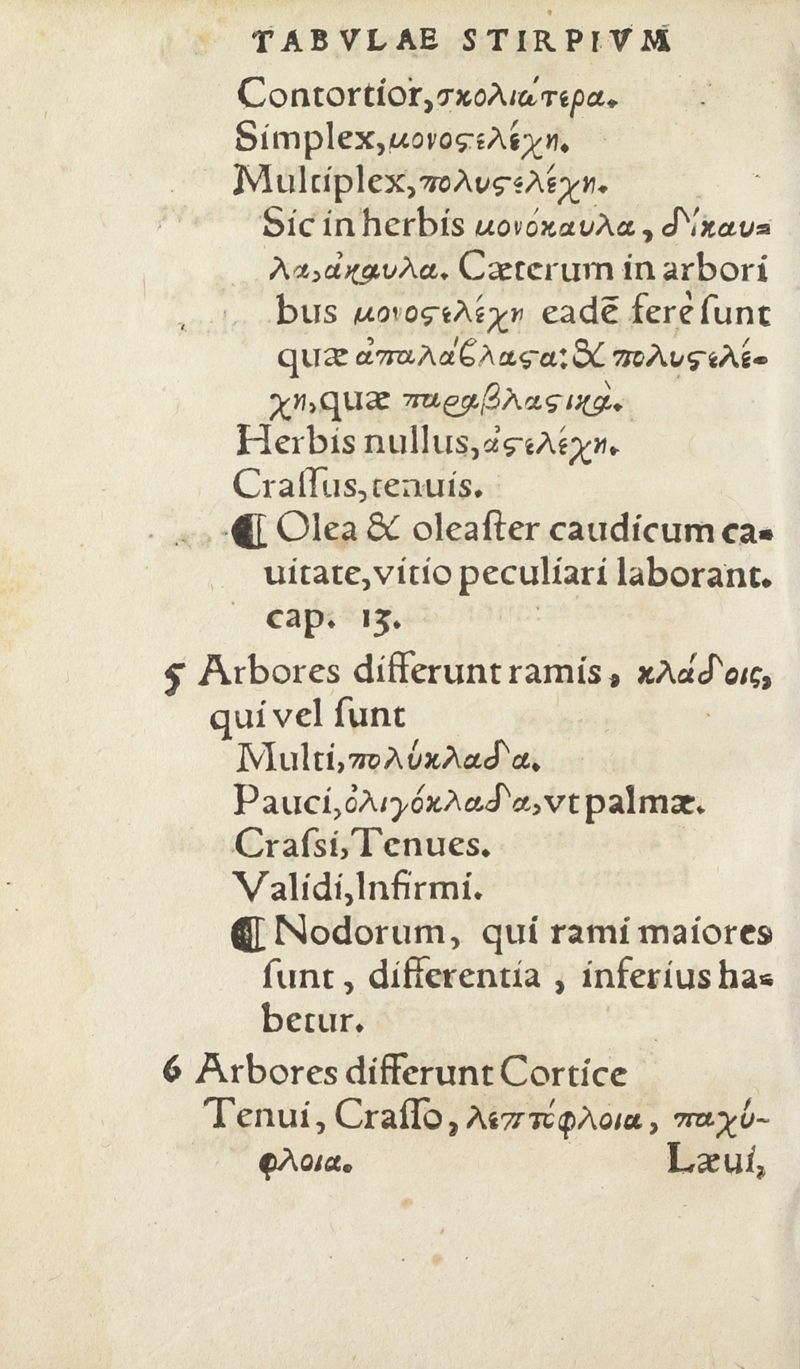 TABVLAE STIRPIVM
Contortior, σκολιώτερα.
Simplex, μονοϛελέχη.
Multiplex, πολυϛελέχη.
Sic in herbis μονόκαυλα, δίκαυ-
λα, ἀκαυλα. Cæterum in arbori
bus μονοϛελέχη eadẽ ferè sunt
quæ ἀπαλάβλαϛα: & πολυϛελέ-
χη, quæ παραβλαϛικά.
Herbis nullus, ἀϛελέχη.
Crassus, tenuis.
¶ Olea & oleaster caudicum ca-
uitate, vitio peculiari laborant.
cap. 13.
5 Arbores differunt ramis, κλάδοις,
qui vel sunt
Multi, πολύκλαδα.
Pauci, ὀλιγόκλαδα, vt palmæ.
Crassi, Tenues.
Validi, Infirmi.
¶ Nodorum, qui rami maiores
sunt, differentia, inferius ha-
betur.
6 Arbores differunt Cortice
Tenui, Crasso, λεπτόφλοια, παχύ-
φλοια. Læui,